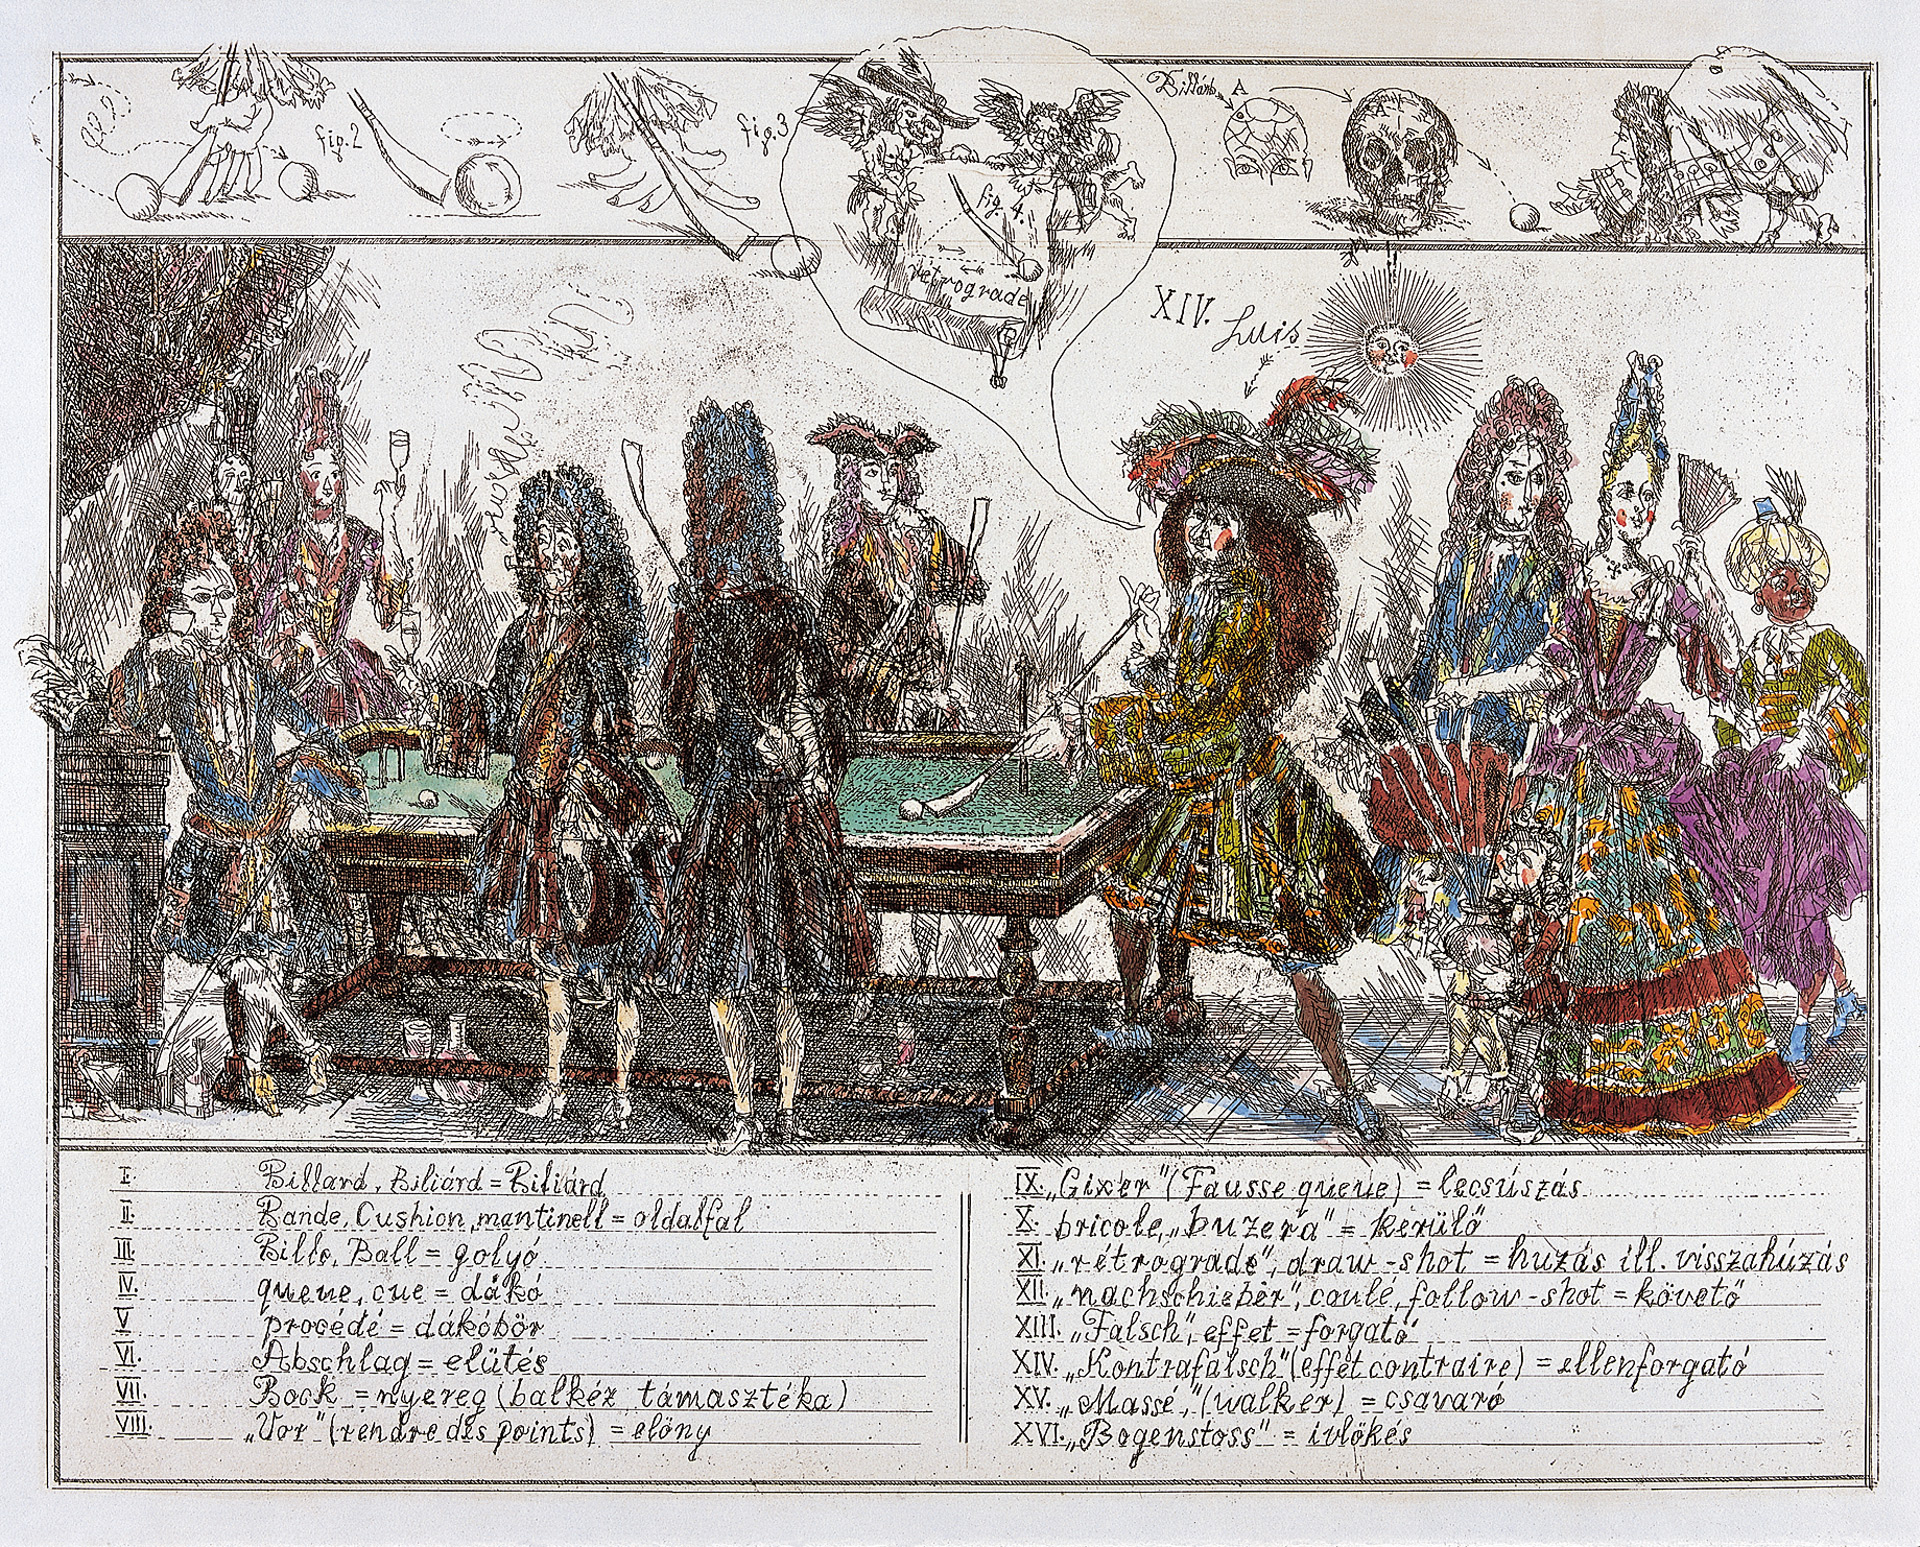 fig.2
fig.3
fig. 4.
retrograde
A
A
XIV. Luis
I. Billard, Biliárd = Biliárd
II. Bande, Cushion, mantinell = oldalfal
III. Bille, Ball = golyó
IV. queue, cue = dákó
V. procédé = dákóbőr
VI. Abschlag = elütés
VII. Bock = nyereg (balkéz támasztéka)
VIII. „Vor" (rendre des points) = előny
IX. „Gixer" (Fausse queue) = lecsúszás
X. bricole, „buzera" = kerülő
XI. „rétrograde", draw-shot = huzás ill. visszahúzás
XII. „nachschieber", coulé, follow-shot = követő
XIII. „Falsch", effet = forgató
XIV. „Kontrafalsch" (effet contraire) = ellenforgató
XV. „Massé," (walker) = csavaró
XVI. „Bogenstoss" = ivlökés